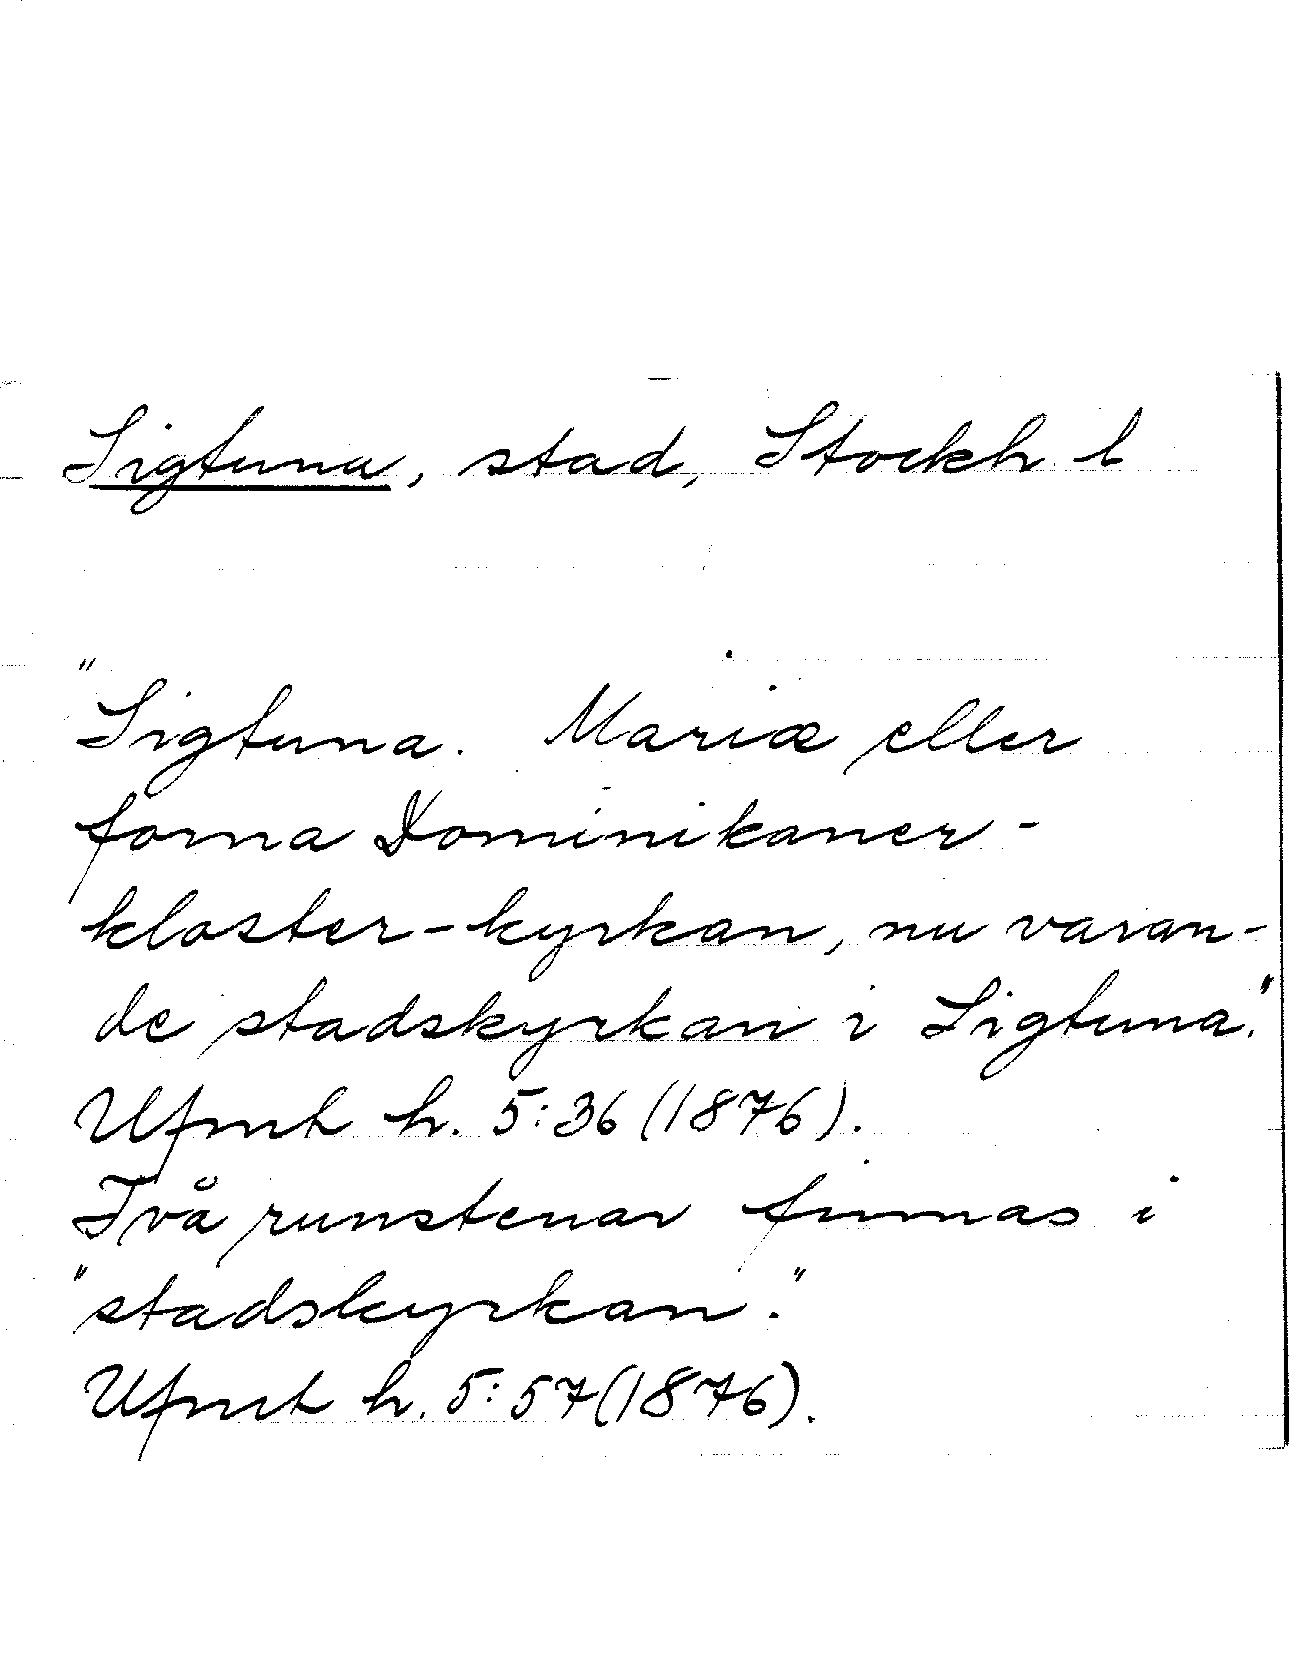 Sigtuna, stad, Stockh l
"Sigtuna. Mariæ eller
forna Dominikaner-
kloster-kyrkan, nu varan-
de stadskyrkan i Sigtuna."
Ufmt h. 5:36 (1876).
Två runstenar finnas i
"stadskyrkan."
Ufmt h. 5:57 (1876).